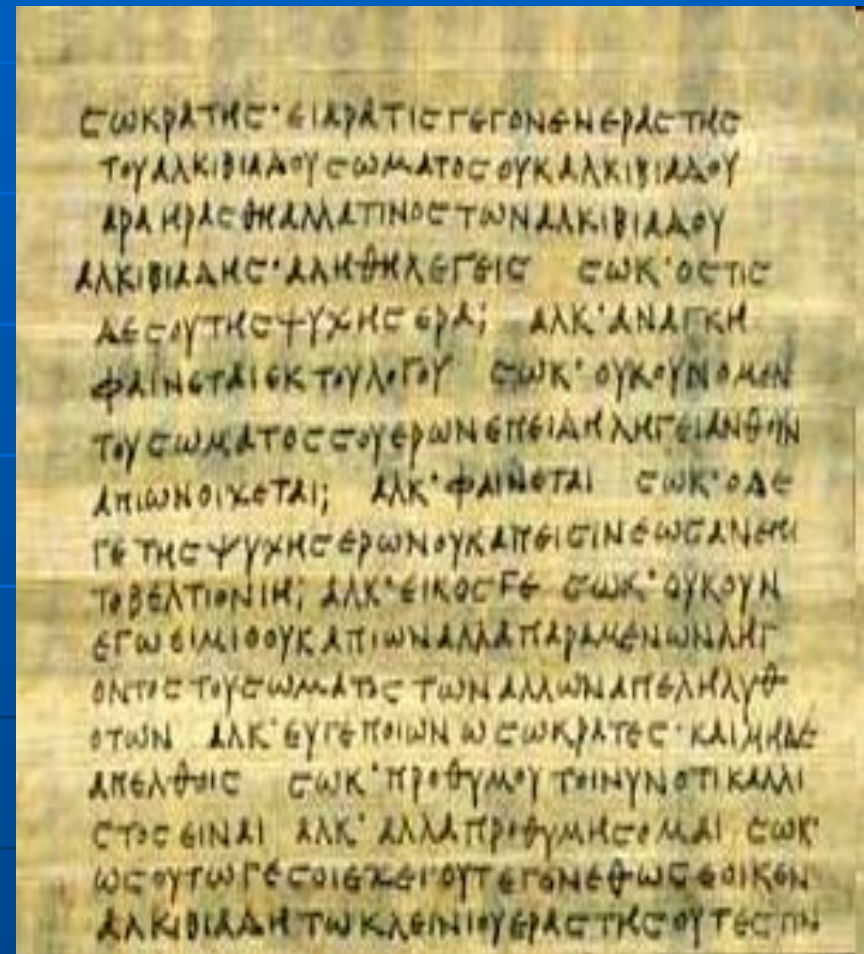 ϹΩΚΡΑΤΗϹ· ΕΙΑΡΑΤΙϹΓΕΓΟΝΕΝΕΡΑϹΤΗϹ
ΤΟΥΑΛΚΙΒΙΑΔΟΥϹΩΜΑΤΟϹΟΥΚΑΛΚΙΒΙΑΔΟΥ
ΑΡΑΗΡΑϹΘΗΑΛΛΑΤΙΝΟϹΤΩΝΑΛΚΙΒΙΑΔΟΥ
ΑΛΚΙΒΙΑΔΗϹ·ΑΛΗΘΗΛΕΓΕΙϹ ϹΩΚ·ΟϹΤΙϹ
ΔΕϹΟΥΤΗϹΨΥΧΗϹΕΡΑ; ΑΛΚ·ΑΝΑΓΚΗ
ΦΑΙΝΕΤΑΙΕΚΤΟΥΛΟΓΟΥ ϹΩΚ·ΟΥΚΟΥΝΟΜΕΝ
ΤΟΥϹΩΜΑΤΟϹϹΟΥΕΡΩΝΕΠΕΙΔΗΛΗΓΕΙΑΝΘΟΥΝ
ΑΠΙΩΝΟΙΧΕΤΑΙ; ΑΛΚ·ΦΑΙΝΕΤΑΙ ϹΩΚ·ΟΔΕ
ΓΕΤΗϹΨΥΧΗϹΕΡΩΝΟΥΚΑΠΕΙϹΙΝΕΩϹΑΝΕΠΙ
ΤΟΒΕΛΤΙΟΝΙΗ; ΑΛΚ·ΕΙΚΟϹΓΕ ϹΩΚ·ΟΥΚΟΥΝ
ΕΓΩΕΙΜΙΟΟΥΚΑΠΙΩΝΑΛΛΑΠΑΡΑΜΕΝΩΝΛΗΓ
ΟΝΤΟϹΤΟΥϹΩΜΑΤΟϹΤΩΝΑΛΛΩΝΑΠΕΛΗΛΥΘ
ΟΤΩΝ ΑΛΚ·ΕΥΓΕΠΟΙΩΝΩϹΩΚΡΑΤΕϹ·ΚΑΙΜΗΔΕ
ΑΠΕΛΘΟΙϹ ϹΩΚ·ΠΡΟΘΥΜΟΥΤΟΙΝΥΝΟΤΙΚΑΛΛΙ
ϹΤΟϹΕΙΝΑΙ ΑΛΚ·ΑΛΛΑΠΡΟΘΥΜΗϹΟΜΑΙ ϹΩΚ·
ΩϹΟΥΤΩΓΕϹΟΙΕΧΕΙΟΥΤΕΓΕΝΕΘΩϹΕΟΙΚΕΝ
ΑΛΚΙΒΙΑΔΗΤΩΚΛΕΙΝΙΟΥΕΡΑϹΤΗϹΟΥΤΕϹΤΙΝ